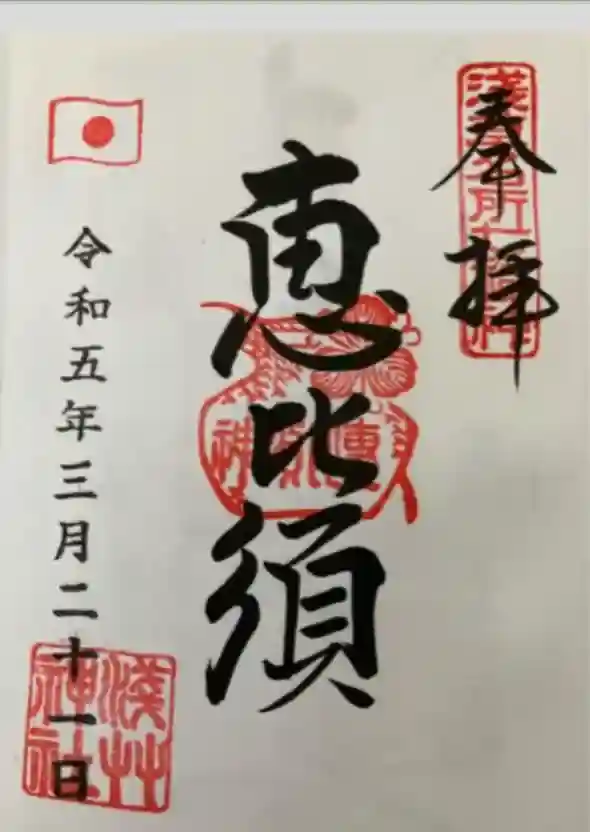 奉拝
恵比須
令和五年三月二十一日
浅草神社